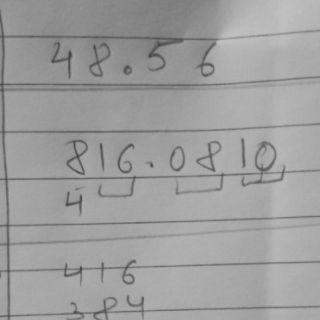 48.56
816.0810
4
416
384